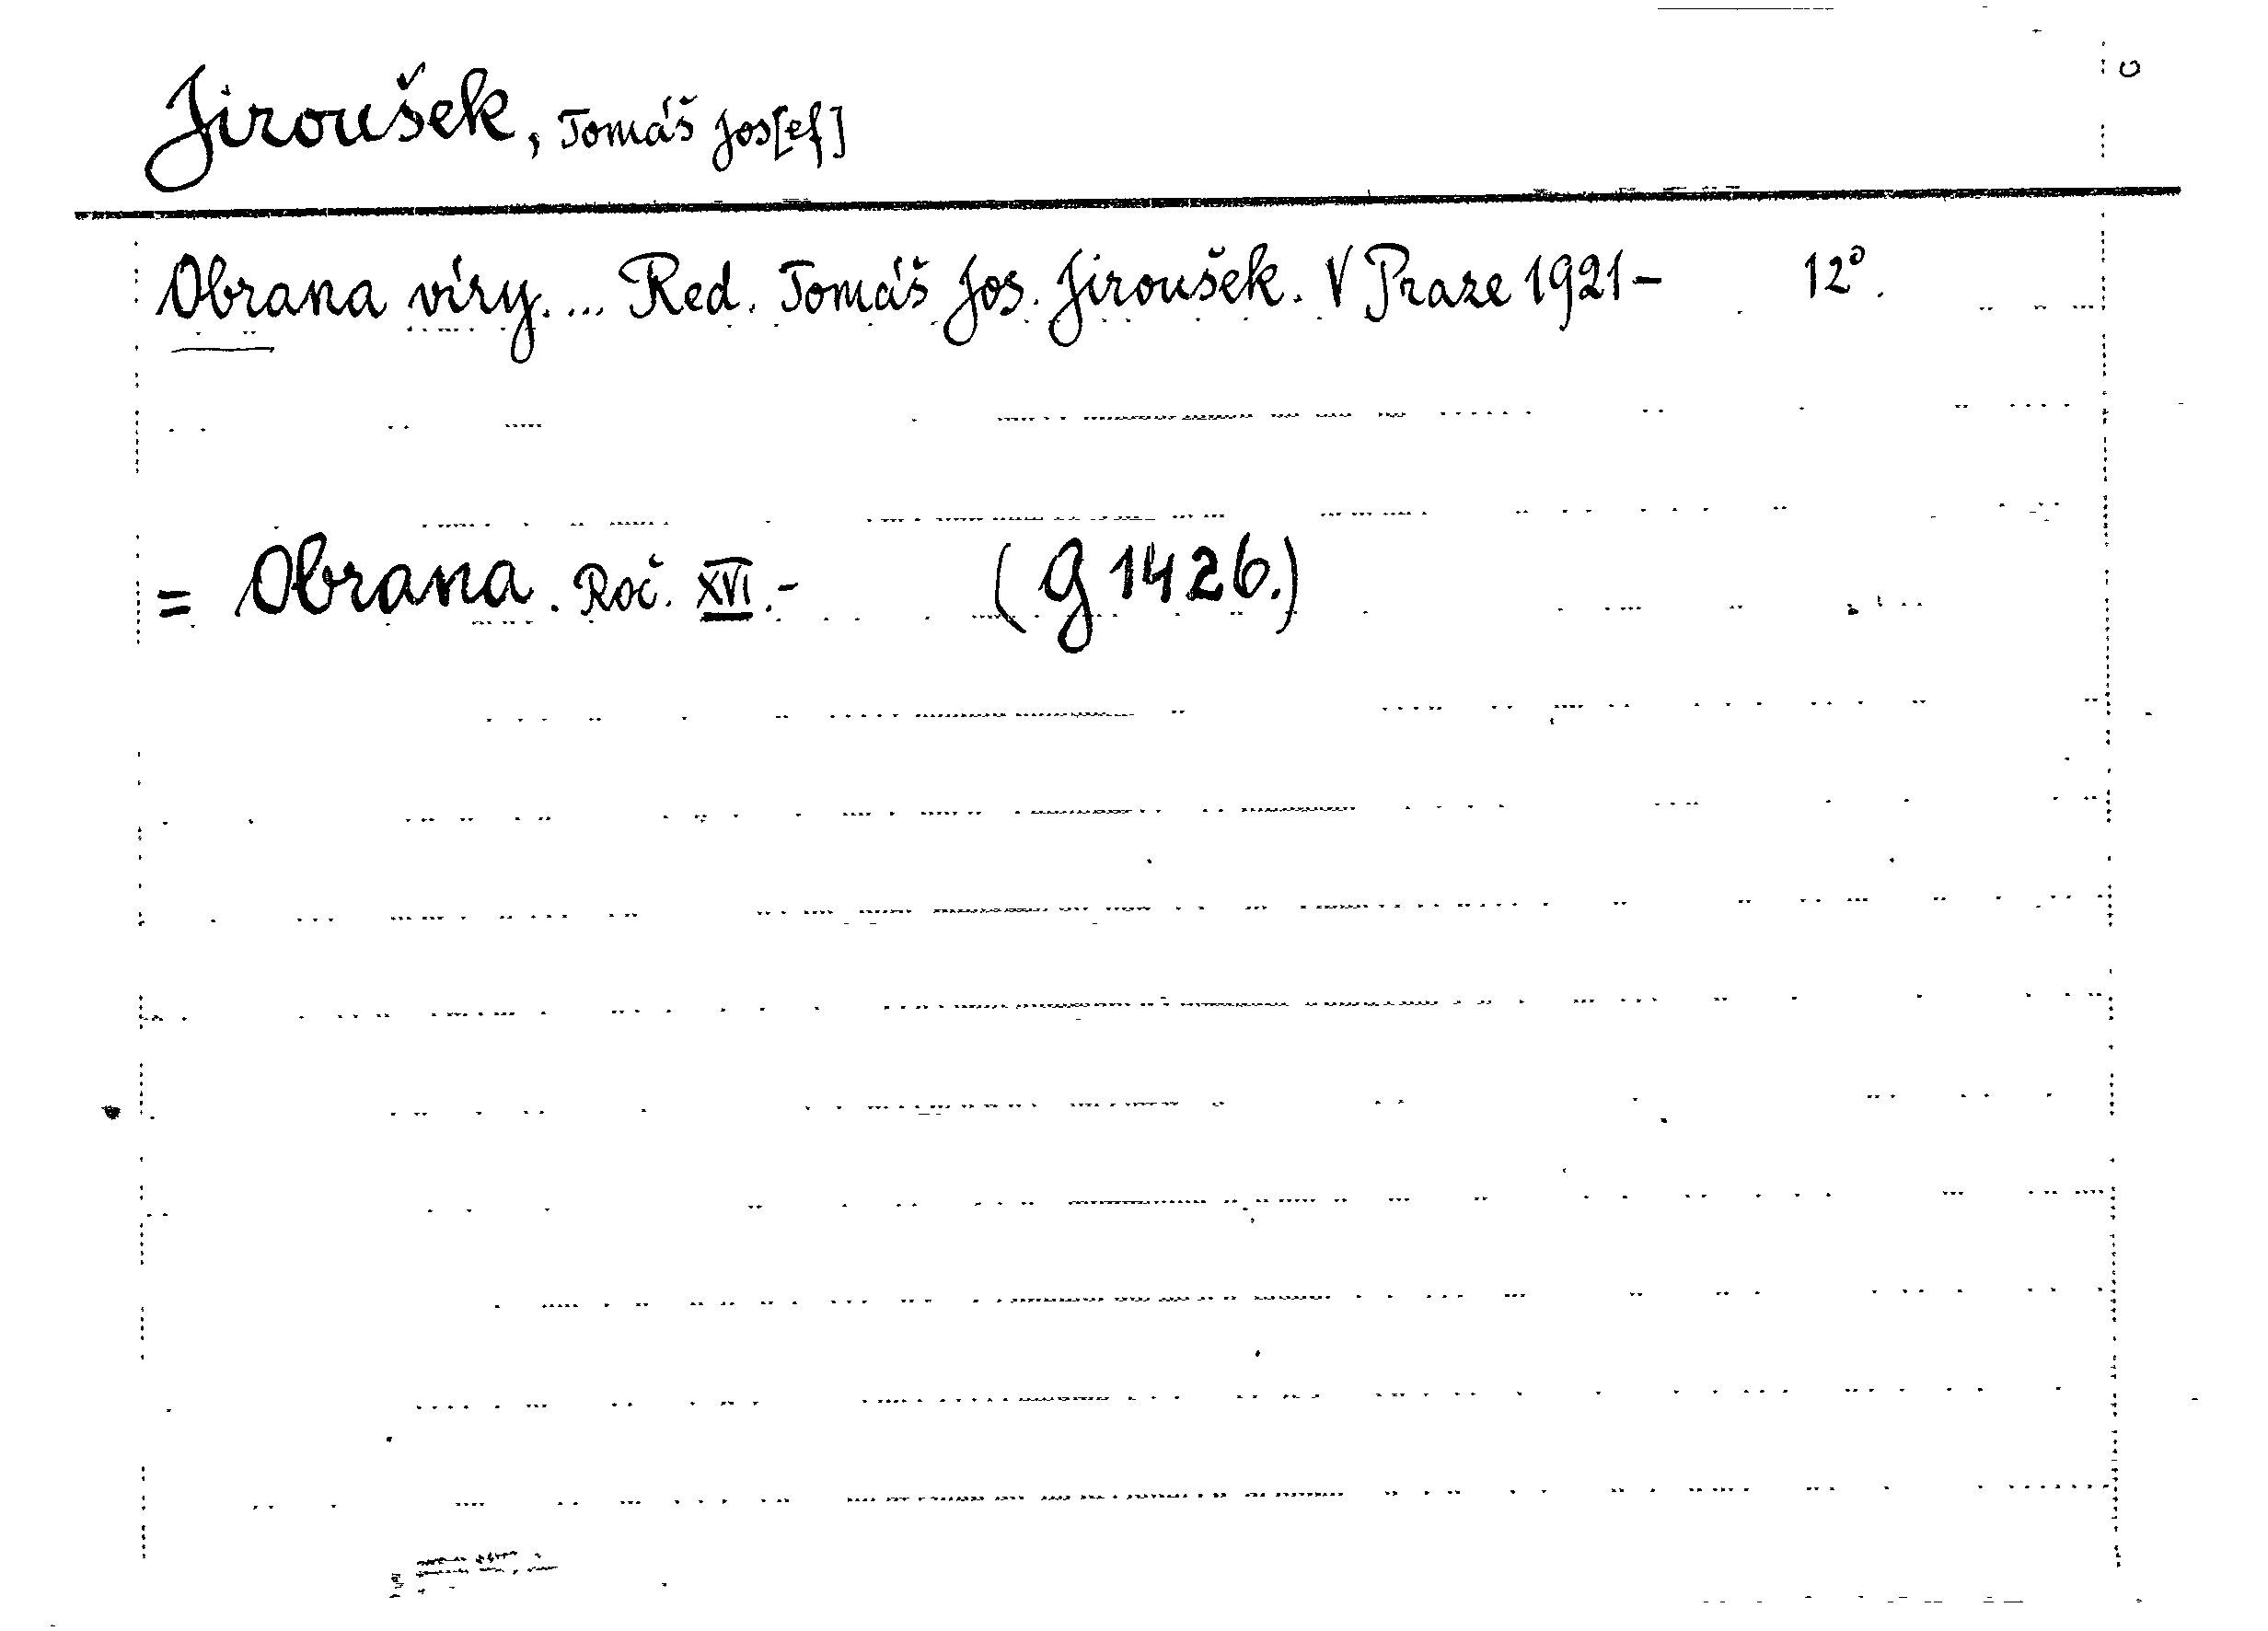 Jiroušek, Tomáš Jos[ef]
Obrana víry. ... Red. Tomáš Jos. Jiroušek. V Praze 1921- 12°.
= Obrana. Roč. XVI.- (G 1426.)